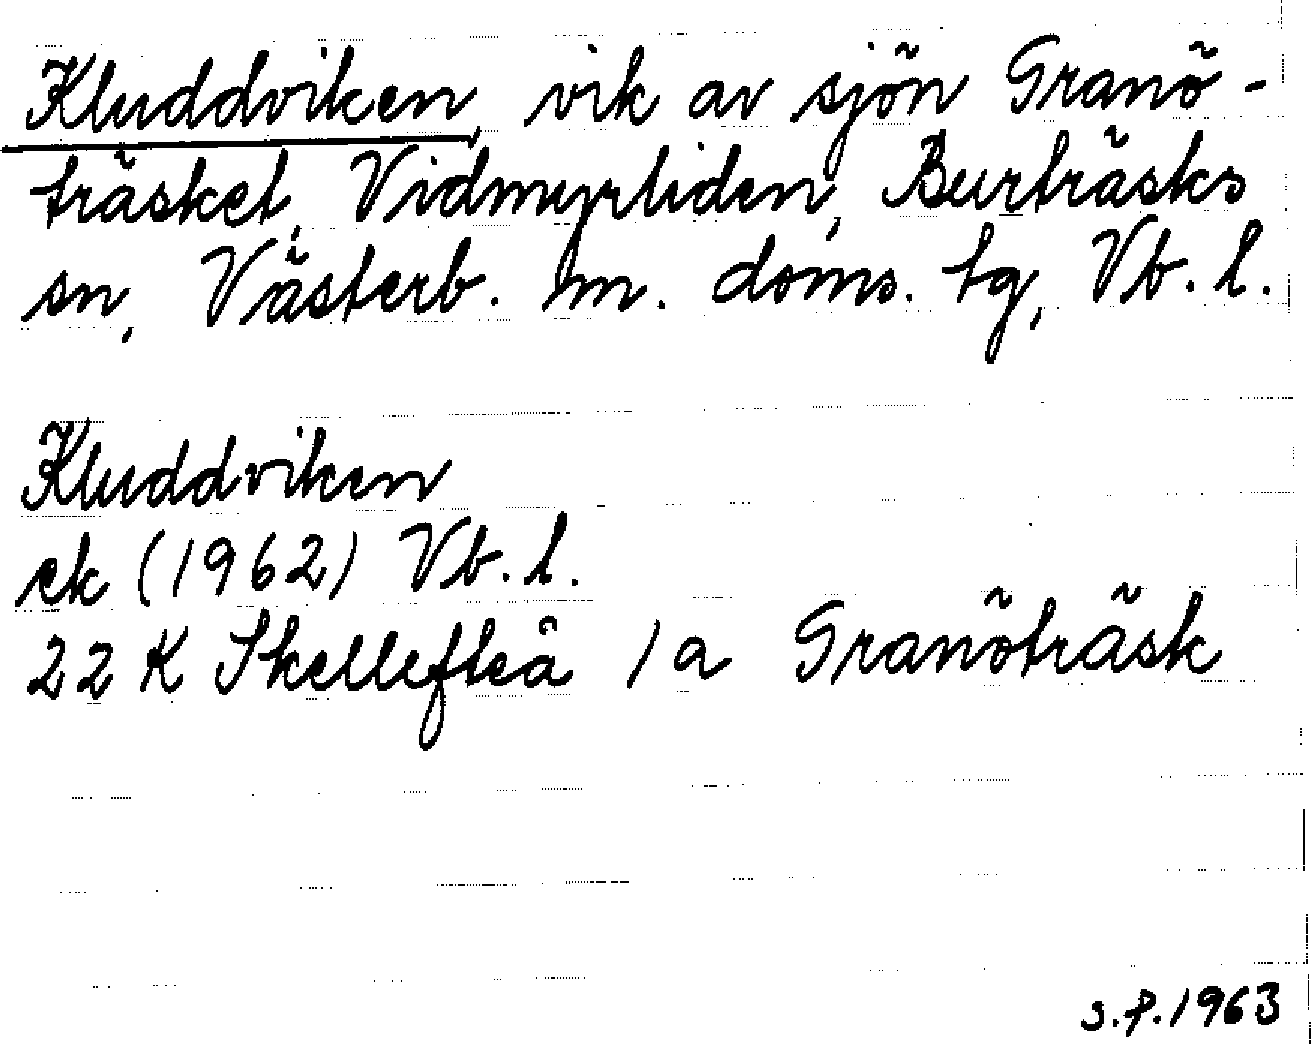 Kluddviken, vik av sjön Granö-
träsket, Vidmyrliden, Burträsks
sn, Västerb. m. doms. tg, Vb. l.
Kluddviken
ek (1962) Vb. l.
22 K Skellefteå 1 a Granöträsk
s.p. 1963